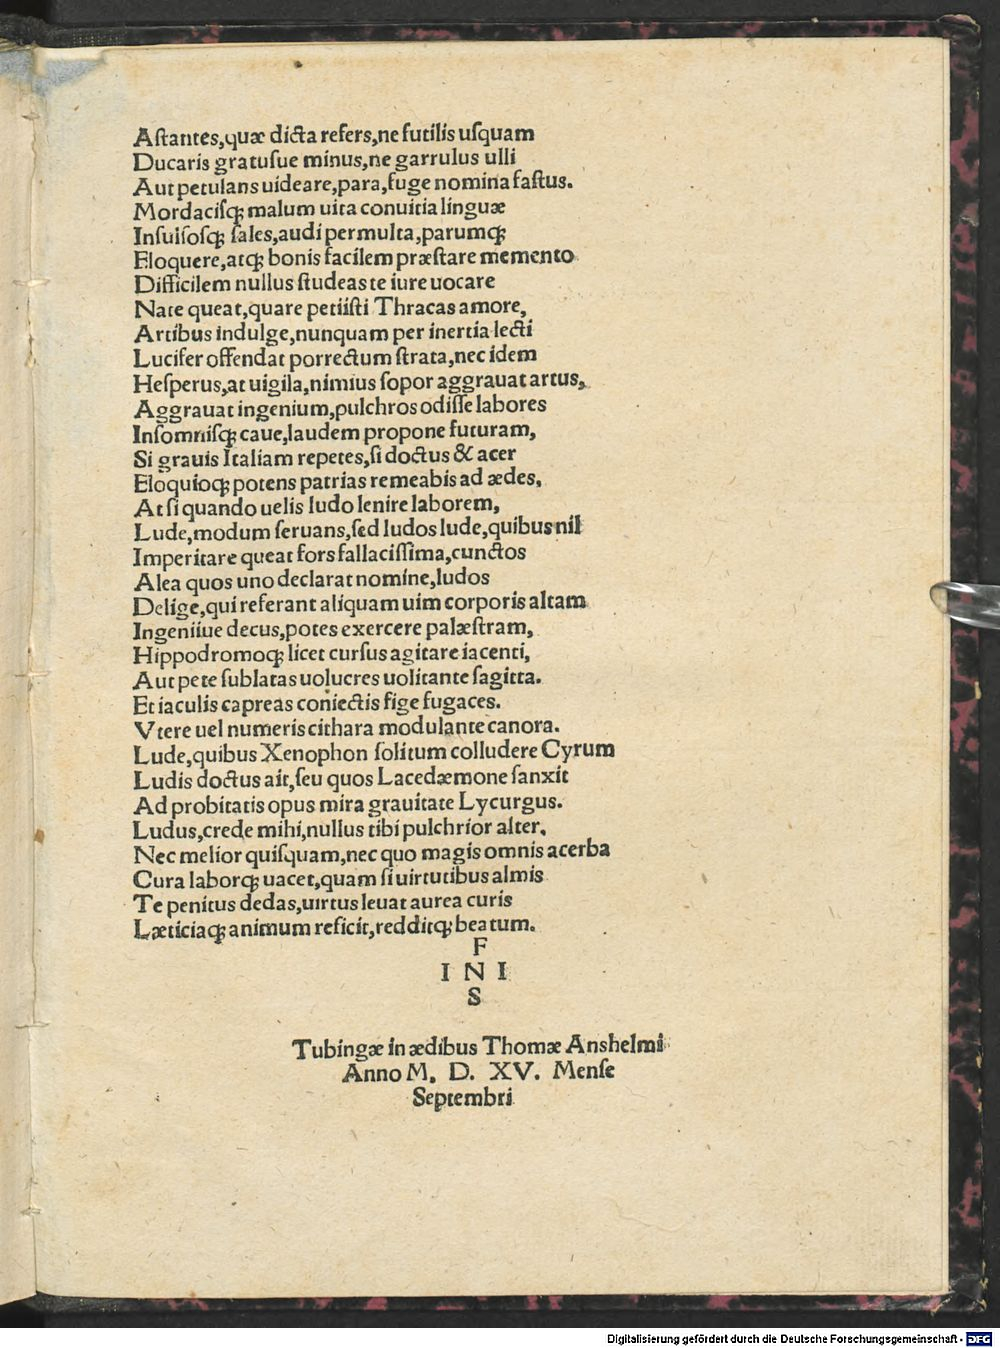 Aſtantes,quæ dicta refers,ne futilis uſquam
Ducaris gratuſue minus,ne garrulus ulli
Aut petulans uideare,para,fuge nomina faſtus.
Mordaciſqꝫ malum uita conuitia linguæ
Inſulſoſqꝫ ſales,audi permulta,parumqꝫ
Eloquere,atqꝫ bonis facilem præſtare memento
Difficilem nullus ſtudeas te iure uocare
Nate queat,quare petiiſti Thracas amore,
Artibus indulge,nunquam per inertia lecti
Lucifer offendat porrectum ſtrata,nec idem
Heſperus,at uigila,nimius ſopor aggrauat artus,
Aggrauat ingenium,pulchros odiſſe labores
Inſomniſqꝫ caue,laudem propone futuram,
Si grauis Italiam repetes,ſi doctus & acer
Eloquioqꝫ potens patrias remeabis ad ædes,
At ſi quando uelis ludo lenire laborem,
Lude,modum ſeruans,ſed ludos lude,quibus nil
Imperitare queat fors fallaciſſima,cunctos
Alea quos uno declarat nomine,ludos
Delige,qui referant aliquam uim corporis altam
Ingeniiue decus,potes exercere palæſtram,
Hippodromoqꝫ licet curſus agitare iacenti,
Aut pete ſublatas uolucres uolitante ſagitta.
Et iaculis capreas coniectis fige fugaces.
Vtere uel numeris cithara modulante canora.
Lude,quibus Xenophon ſolitum colludere Cyrum
Ludis doctus ait,ſeu quos Lacedæmone ſanxit
Ad probitatis opus mira grauitate Lycurgus.
Ludus,crede mihi,nullus tibi pulchrior alter.
Nec melior quiſquam,nec quo magis omnis acerba
Cura laborqꝫ uacet,quam ſi uirtutibus almis
Te penitus dedas,uirtus leuat aurea curis
Læticiaqꝫ animum reficit,redditqꝫ beatum.
F
I N I
S
Tubingæ in ædibus Thomæ Anshelmi
Anno M. D. XV. Menſe
Septembri
Digitalisierung gefördert durch die Deutsche Forschungsgemeinschaft - DFG